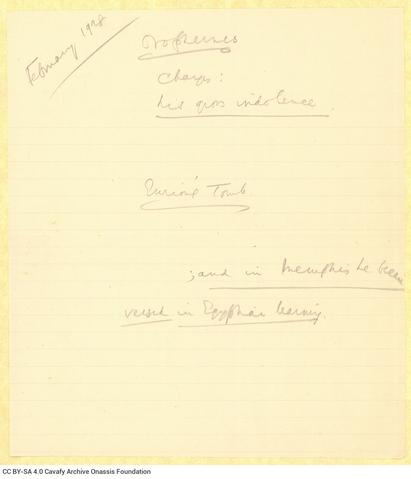 February 1928
Orophernes
Change:
his gross indolence.
Eurion's Tomb.
; and in Memphis he became
versed in Egyptian learning.
CC BY-SA 4.0 Cavafy Archive Onassis Foundation